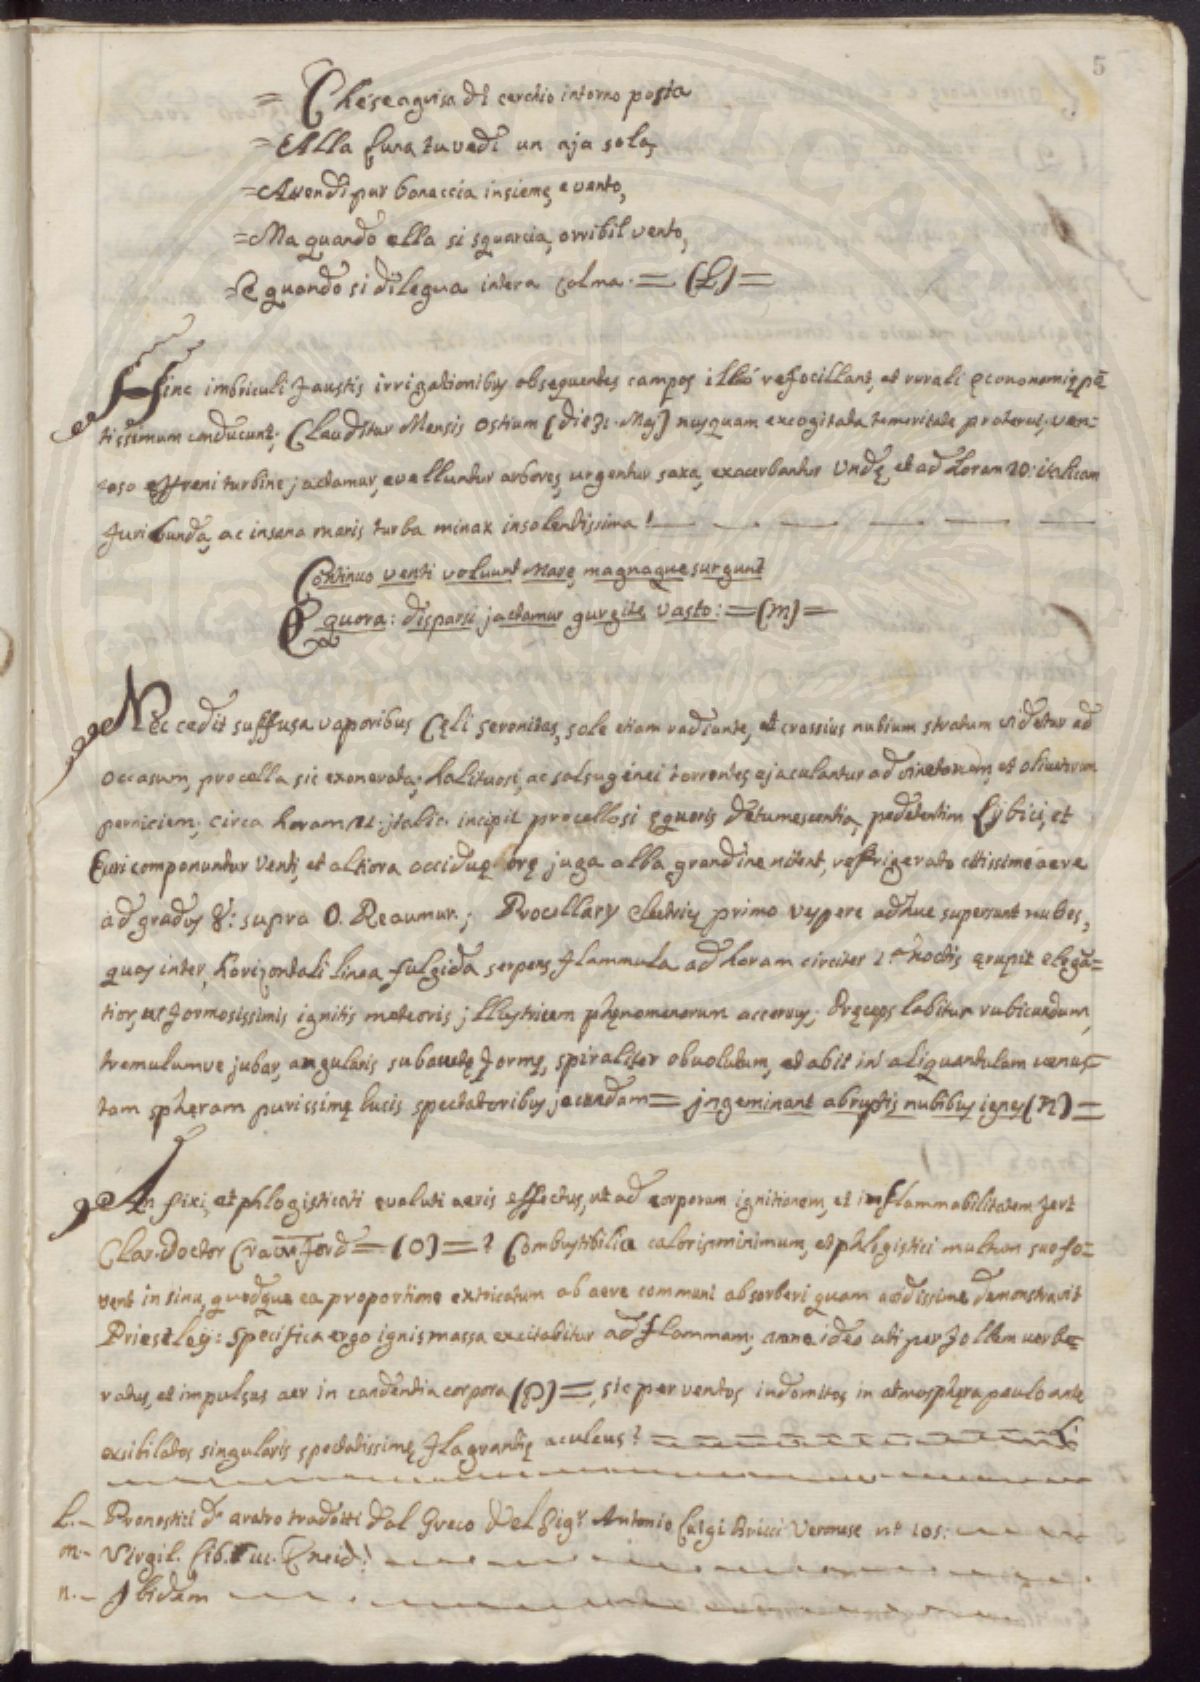 5
= Che se a guisa di cerchio intorno posta
= Alla Luna tu vedi un aja sola,
= Attendi pur bonaccia insieme, e vento,
= Ma quando ella si squarcia, orribil vento,
= E quando si dilegua intera calma. = (L) =
Hinc imbriculi faustis irrigationibus obsequentes campos illicò refocillant, et rurali œconomię
tissimum conducunt; Clauditur Mensis Ostium (die 31. Maj) nusquam excogitata temeritate protervus, ven-
toso effreni turbine jactamur, evelluntur arbores, urgentur saxa, exacerbantur Undę, et ad Horam 20: italicam
furibunda, ac insana maris turba minax insolentissima!
Continuo venti voluunt Mare, magnaque surgunt
Ęquora: disparsi jactamur gurgite vasto: = (m) =
Nec cedit suffusa vaporibus Cęli serenitas, sole etiam radiante, et crassius nubium stratum videtur ad
occasum, procella sic exonerata; halituosi, ac salsuginei torrentes ejaculantur ad vinetorum, et olivetorum
perniciem; circa horam 22. italic. incipit procellosi ęquoris detumescentia, pedetentim Lybici, et
Euri componuntur Venti, et altiora occiduę orę juga alba grandine nitent, refrigerato citissime aere
ad gradus 8: supra 0. Reaumur.; Procellarę primo vespere adhuc supersunt nubes,
quas inter, horizontali linea fulgida serpens flammula ad horam circiter noctis erupit elegā=
tior, ex formosissimis ignitis meteoris illustricem phęnomenorum accervus; Pręceps labitur rubicundum,
tremulumve jubar, angularis subauctę formę, spiraliter obvolutum, et abit in aliquantulam venus=
tam sphęram purissimę lucis spectatoribus jucundam = ingeminant abruptis nubibus ignes (n) =
An fixi, et phlogisticati evoluti aeris effectus, ut ad corporum ignitionem, et inflammabilitatem fert
Clar. Doctor Crawford = (O) = ? Combustibilia caloris minimum, et phlogistici multum suo fo=
vent in sinu, quodque ea proportione extricatum ab aere communi absorberi quam demonstravit
Priestley: Specifica ergo ignis massa excitabitur ad flammam; anne ideo uti per follem verbe=
ratus, et impulsus aer in candentia corpora (P) =, sic per ventos indomitos in atmosphęra paulo ante
exsibilatos singularis spectatissimę flagrantię aculeus?
L. - Pronostici d'Aratro tradotti dal Greco del Sigr Antonio Luigi Bricci Veronese no 105:
m. - Virgil. Lib. III. Eneid:
n. - Ibidem